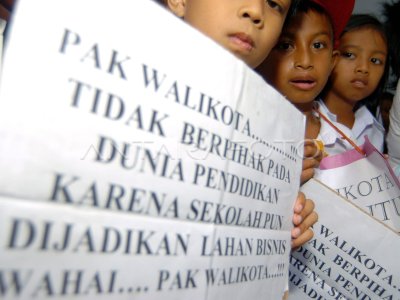 PAK WALIKOTA..............
TIDAK BERPIHAK PADA
DUNIA PENDIDIKAN
KARENA SEKOLAH PUN
DIJADIKAN LAHAN BISNIS
WAHAI.... PAK WALIKOTA...!!!
ANTARA FOTO
WALIKOTA
WALIKOTA..
TIDAK BERPIHAK
DUNIA PEND